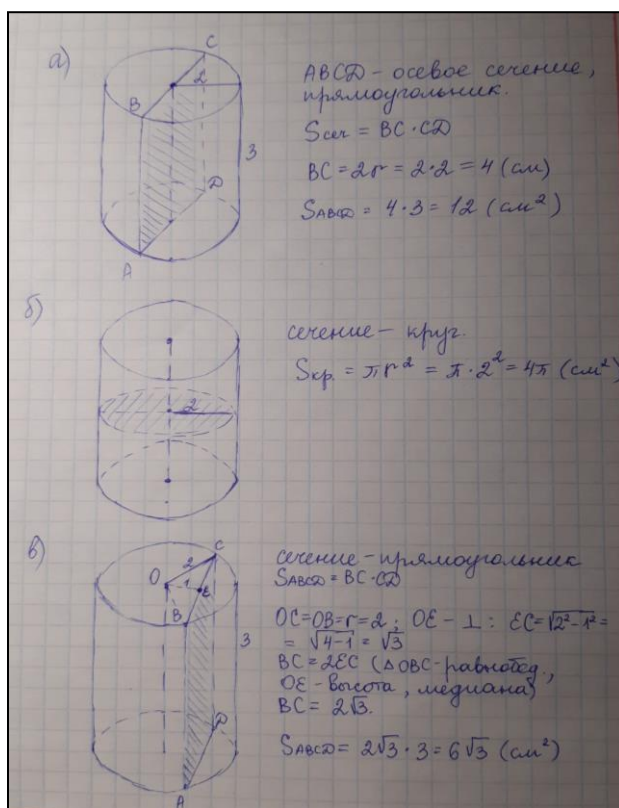 а)
C
2
B
3
D
A
ABCD – осевое сечение,
прямоугольник.
Sсеч = BC·CD
BC = 2r = 2·2 = 4 (см)
SABCD = 4·3 = 12 (см²)
б)
2
сечение – круг.
Sкр. = πr² = π·2² = 4π (см²)
в)
C
2
O
1
E
B
3
D
A
сечение – прямоугольник
SABCD = BC·CD
OC=OB=r=2; OE – ⊥: EC=√2²-1² =
= √4-1 = √3
BC = 2EC (△OBC-равнобед.,
OE – высота, медиана)
BC = 2√3.
SABCD = 2√3·3 = 6√3 (см²)